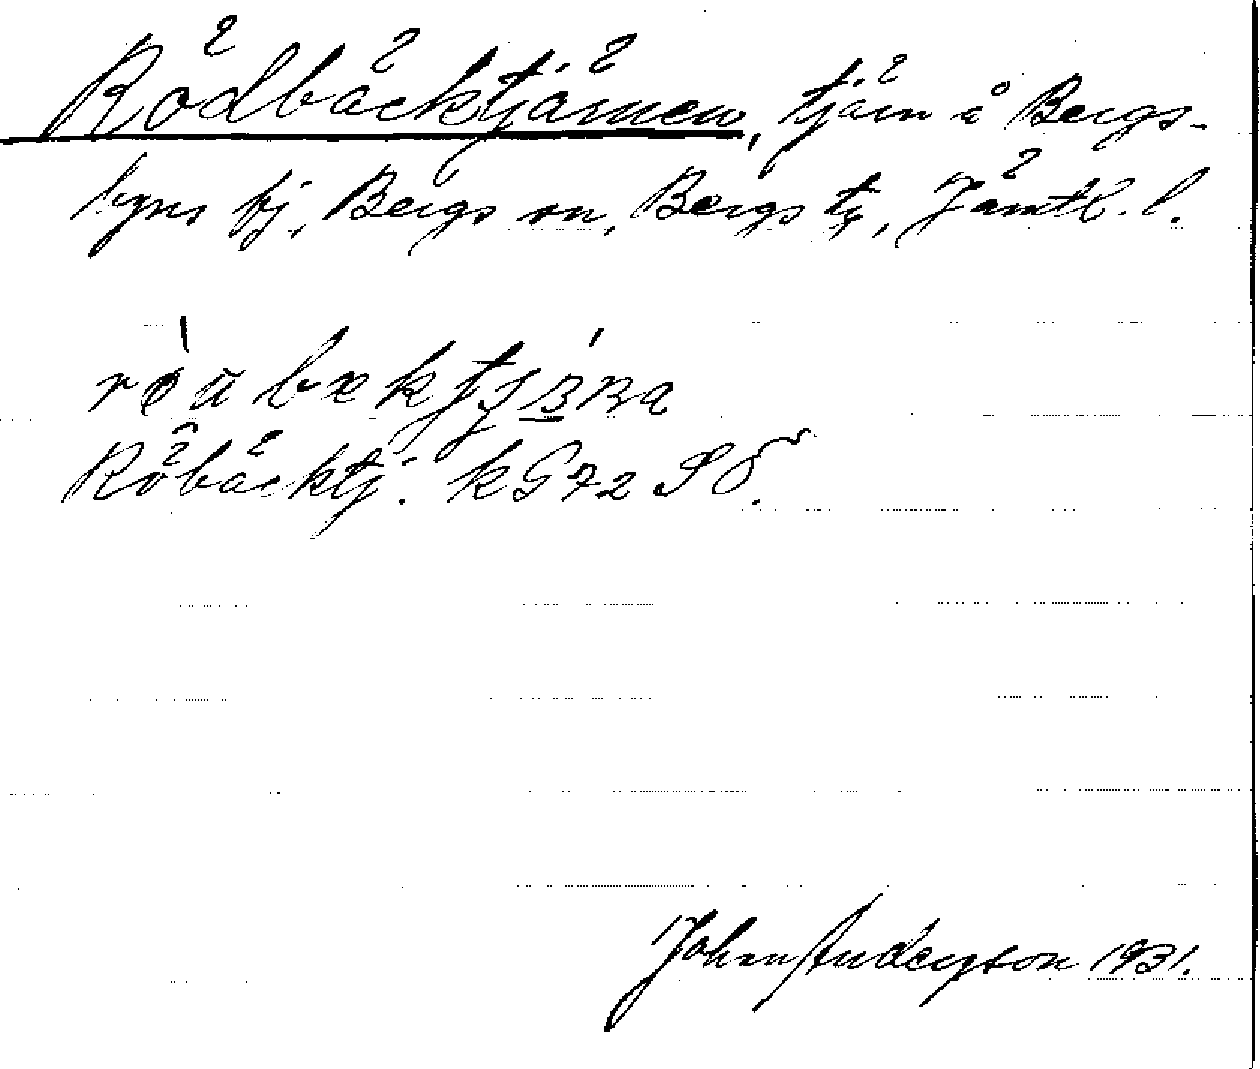 Rödbäcktjärnen, tjärn å Bergs-
byns fj., Bergs sn, Bergs tg, Jämtl. l.
Röbäcktj. k G 72 SÖ.
John Anderson 1931.